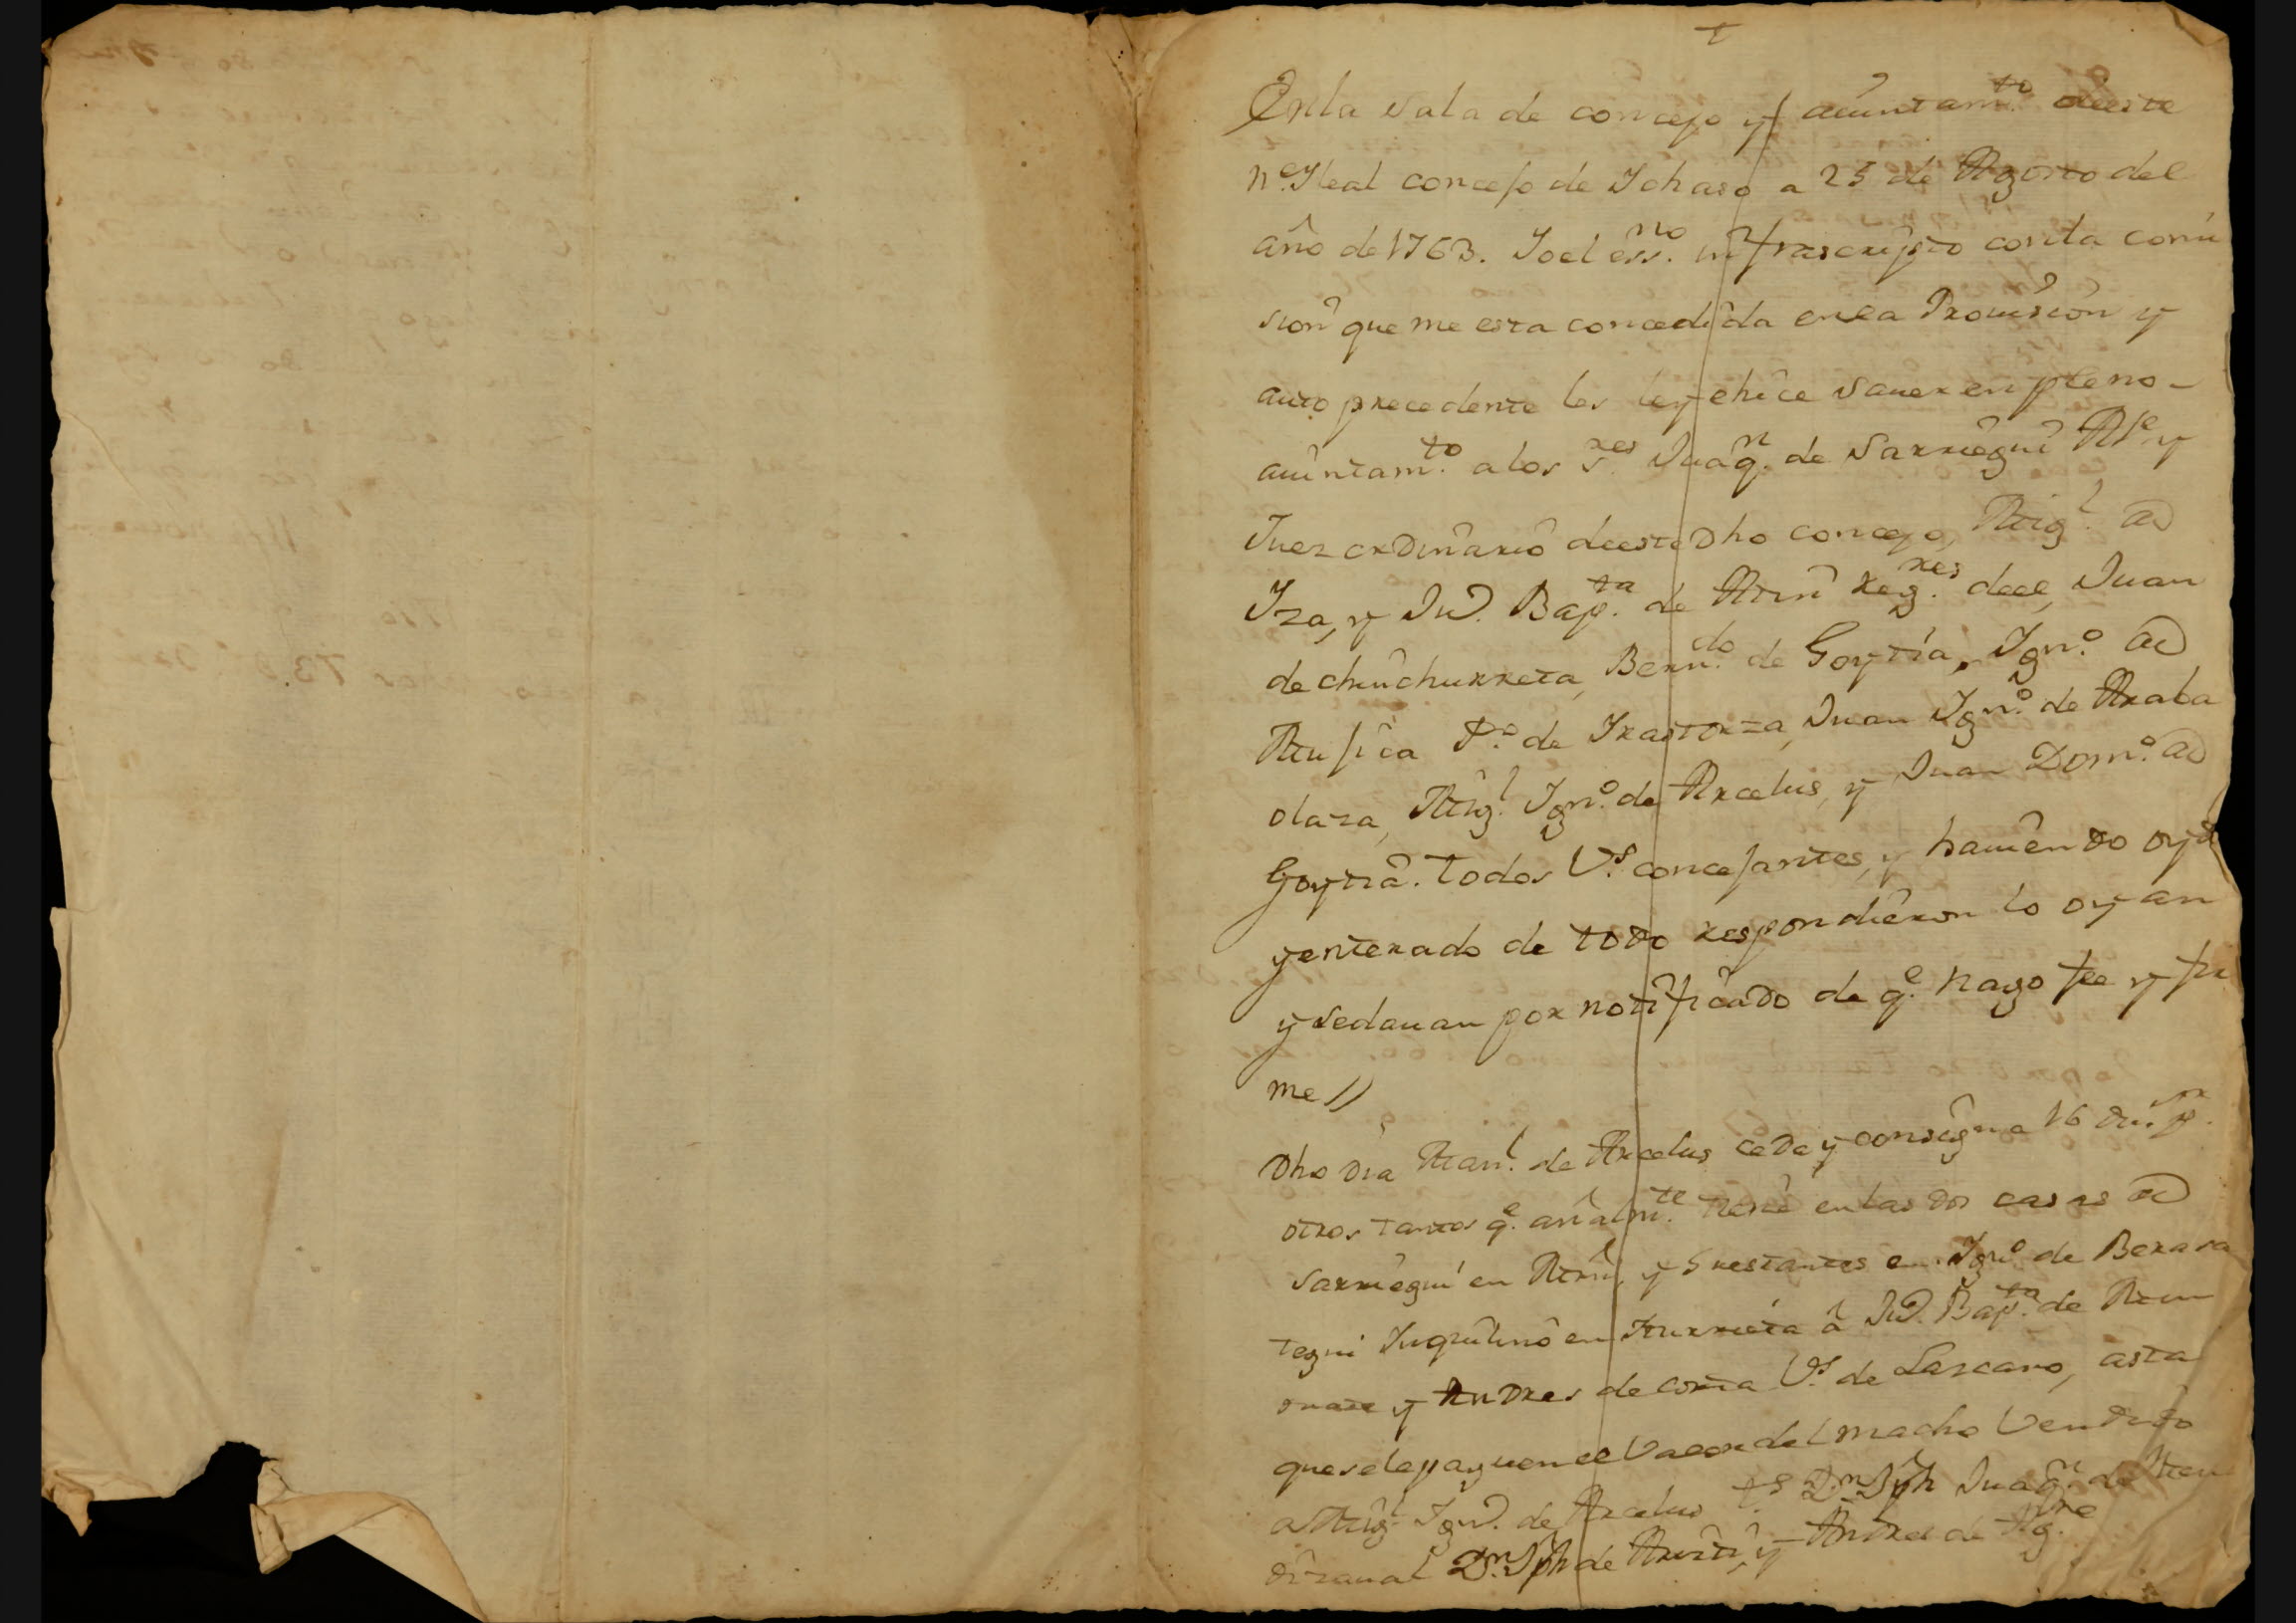 †
En la Sala de concejo y aiuntam.to de este
N.e Y leal concejo de Ichaso a 25 de Agosto del
año de 1763. Yo el ess.no infrascripto con la comi
sion que me esta concedida en la Provision y
auto precedente les ley e hice saver en pleno
aiuntam.to a los s.res Juaq.n de Sarriegui Al.e y
Juez ordinario de este Dho concejo, Mig.l de
Yza, y Ju.o Bap.ta de Atin reg.res de el, Juan
de chinchurreta, Bern.do de Goytia, Ygn.o de
Mujica P.o de Yrastorza, Juan Ygn.o de Araba
olaza, Mig.l Ygn.o de Arcelus, y Juan Dom.o de
Goytia. todos V.s concejantes, y haviendo oyd
y enterado de todo respondieron lo oyan
y se davan por notificado de q.e hago fee y fir
me //
Dho Dia Man.l de Arcelus cede y consigna 16 du.s p.r
otros tantos q.e anualm.te tiene en las dos casas de
Sarriegui en Atin, y 5 restantes en Ygn.o de Berasa
tegui Ynquilino en Yturrieta a Ju.o Bap.ta de
y Andres de V.s de Lazcano, asta
que se le paguen el valor del macho vendido
a Mig.l Ygn.o de Arcelus t.s D.n Jph Juaq.n de Men
dizaval D.n Jph de y Andres de Ag.rre